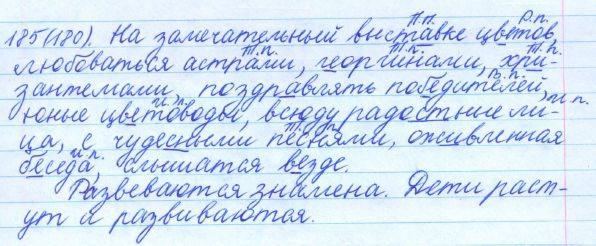 185(180). На замечательный выставке цветов,
любоваться астрами, георгинами, хри-
зантемами, поздравлять победителей,
юные цветоводы, всюду радостные ли-
ца, с чудесными песнями, оживленная
беседа, слышатся везде.
Развеваются знамена. Дети раст-
ут и развиваются.